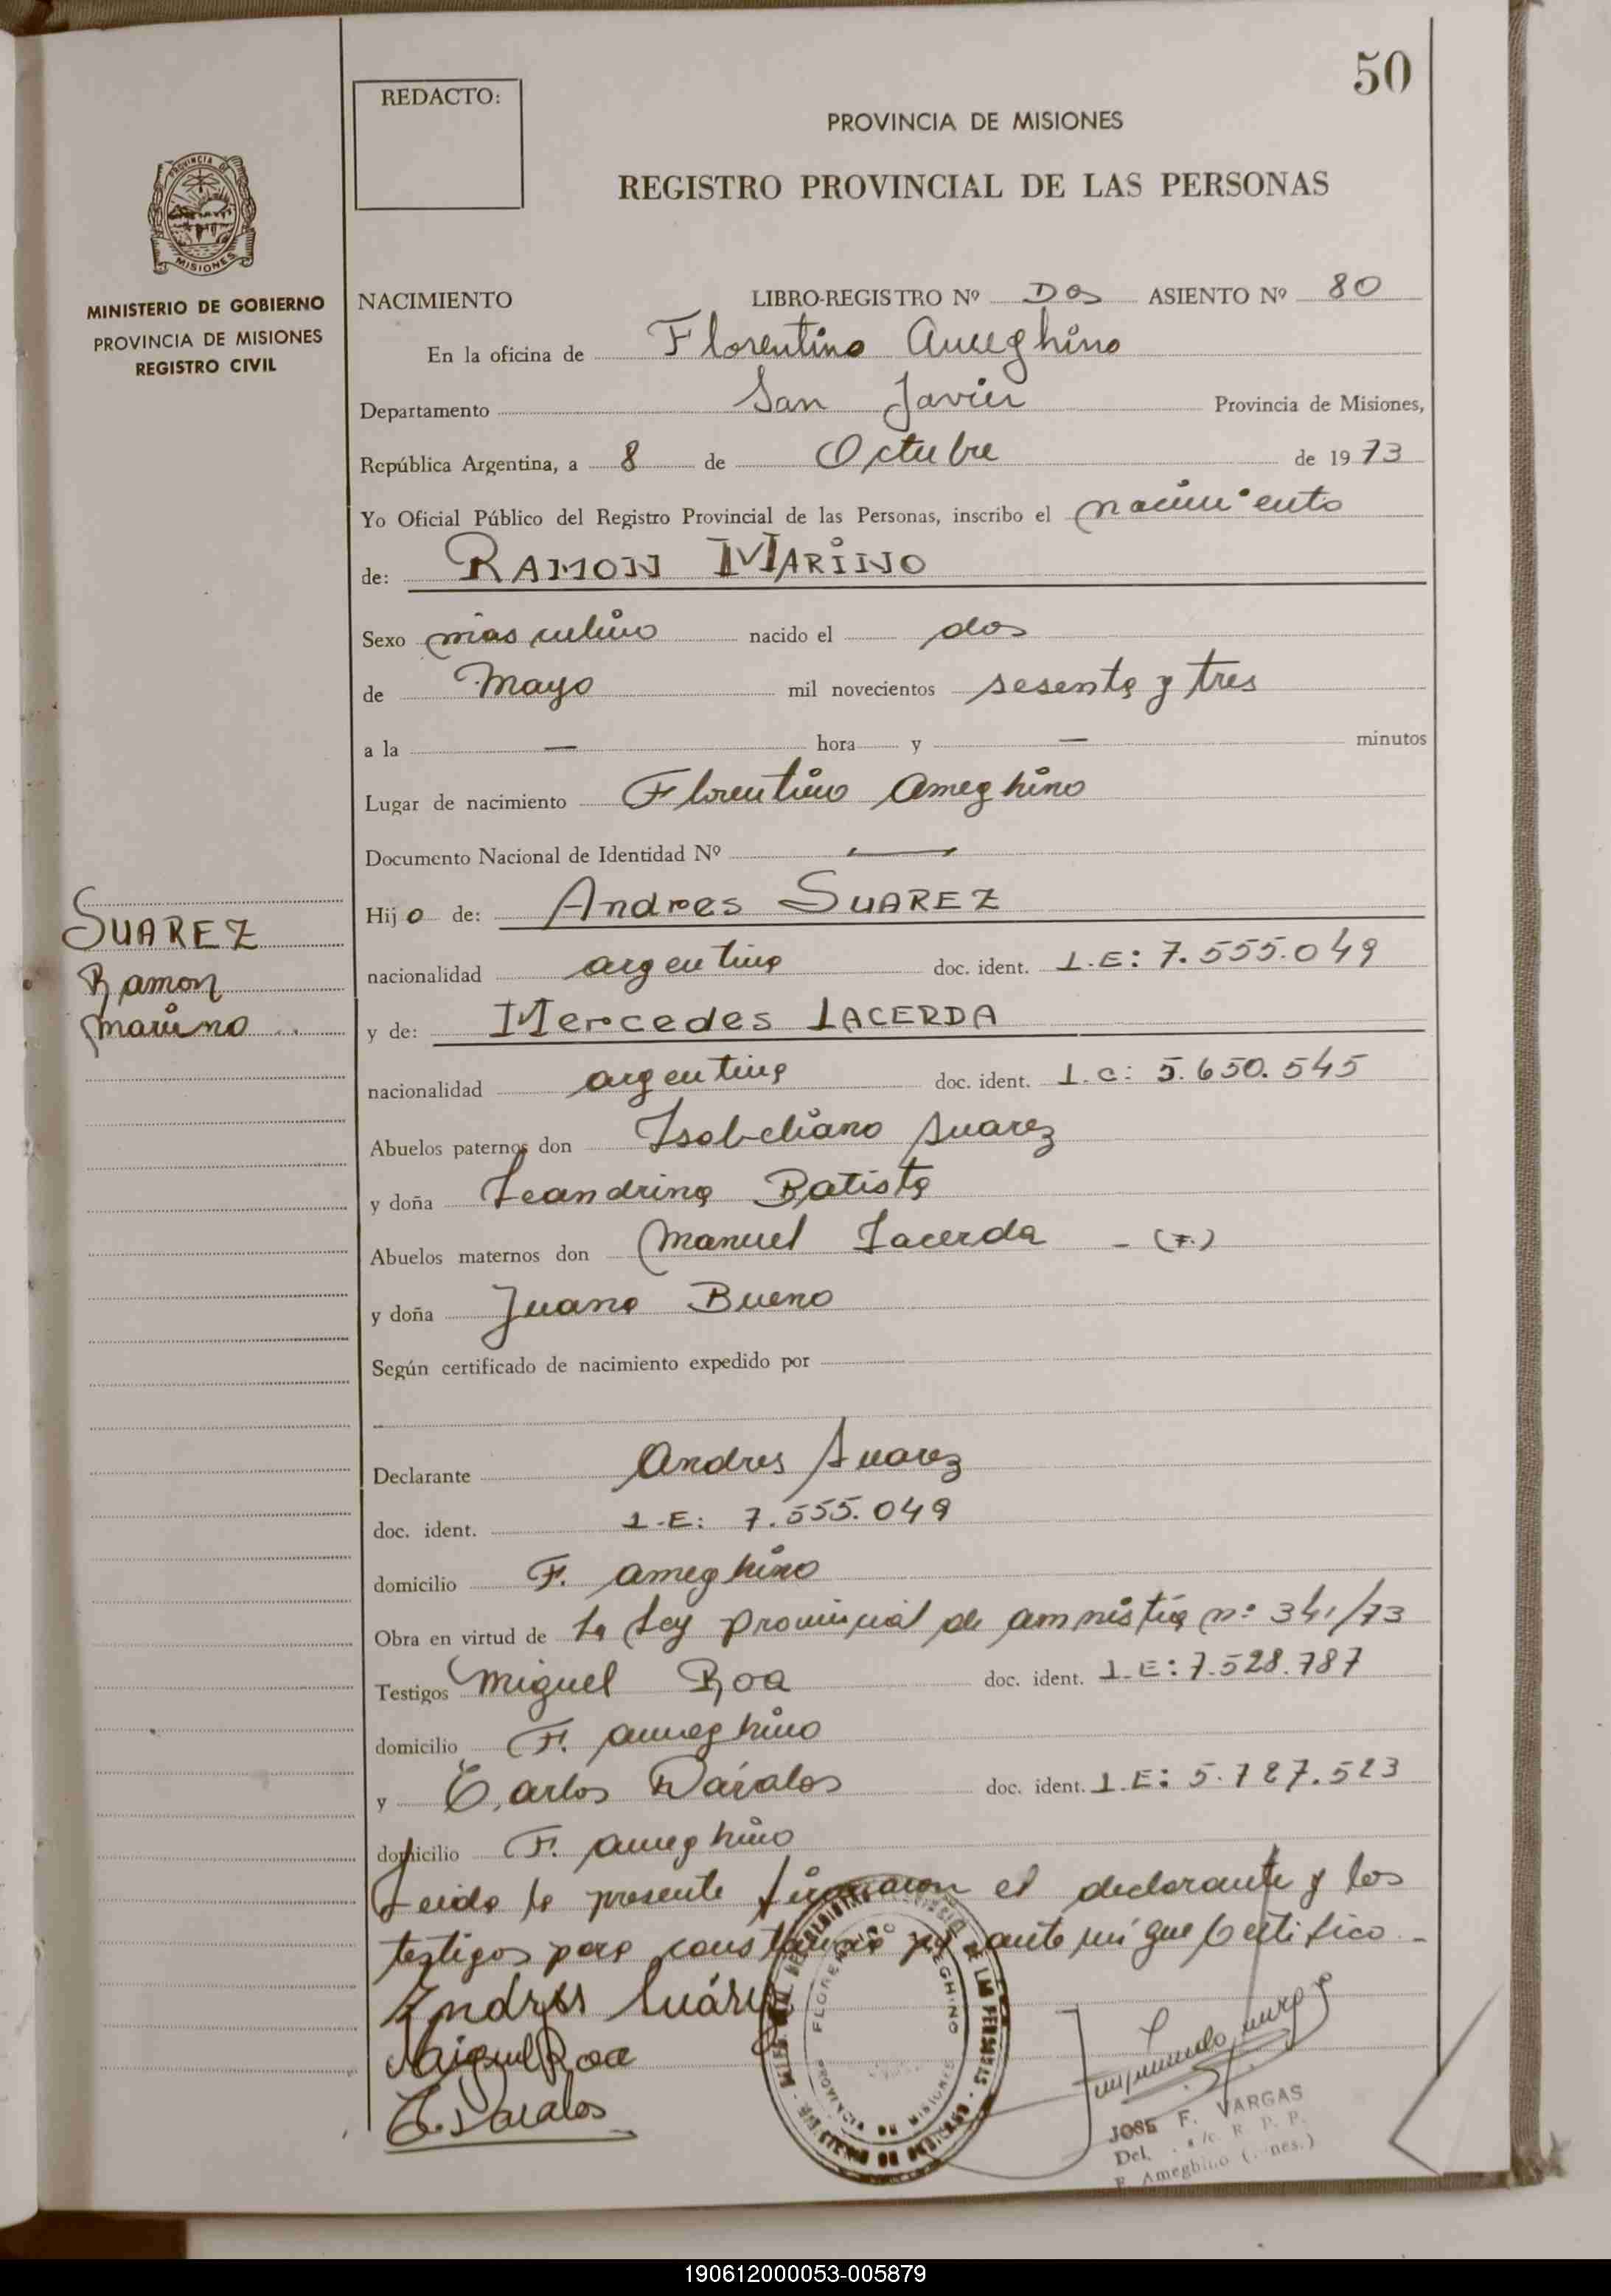 50
REDACTO:
PROVINCIA DE MISIONES
REGISTRO PROVINCIAL DE LAS PERSONAS
PROVINCIA DE
MISIONES
MINISTERIO DE GOBIERNO
PROVINCIA DE MISIONES
REGISTRO CIVIL
NACIMIENTO LIBRO-REGISTRO Nº Dos ASIENTO Nº 80
En la oficina de Florentino Ameghino
Departamento San Javier Provincia de Misiones,
República Argentina, a 8 de Octubre de 1973
Yo Oficial Público del Registro Provincial de las Personas, inscribo el nacimiento
de: RAMON MARINO
Sexo masculino nacido el dos
de Mayo mil novecientos sesenta y tres
a la — hora y — minutos
Lugar de nacimiento Florentino Ameghino
Documento Nacional de Identidad Nº —
Hijo de: Andres SUAREZ
SUAREZ
Ramon
Marino
nacionalidad argentina doc. ident. L.E: 7.555.049
y de: Mercedes LACERDA
nacionalidad argentina doc. ident. L.C: 5.650.545
Abuelos paternos don Isabeliano Suarez
y doña Leandrina Batista
Abuelos maternos don Manuel Lacerda - (F.)
y doña Juana Bueno
Según certificado de nacimiento expedido por
Declarante Andres Suarez
doc. ident. L.E: 7.555.049
domicilio F. Ameghino
Obra en virtud de la Ley provincial de amnistia nº 341/73
Testigos Miguel Roa doc. ident. L.E: 7.528.787
domicilio F. Ameghino
y Carlos Dávalos doc. ident. L.E: 5.787.523
domicilio F. Ameghino
Leida la presente firmaron el declarante y los
testigos para constancia por ante mi que Certifico.-
Andres Suárez
Miguel Roa
C. Davalos
FLORENTINO AMEGHINO
PROVINCIA DE MISIONES
JOSE F. VARGAS
Del. a/c. R. P. P.
F. Ameghino (nes.)
190612000053-005879